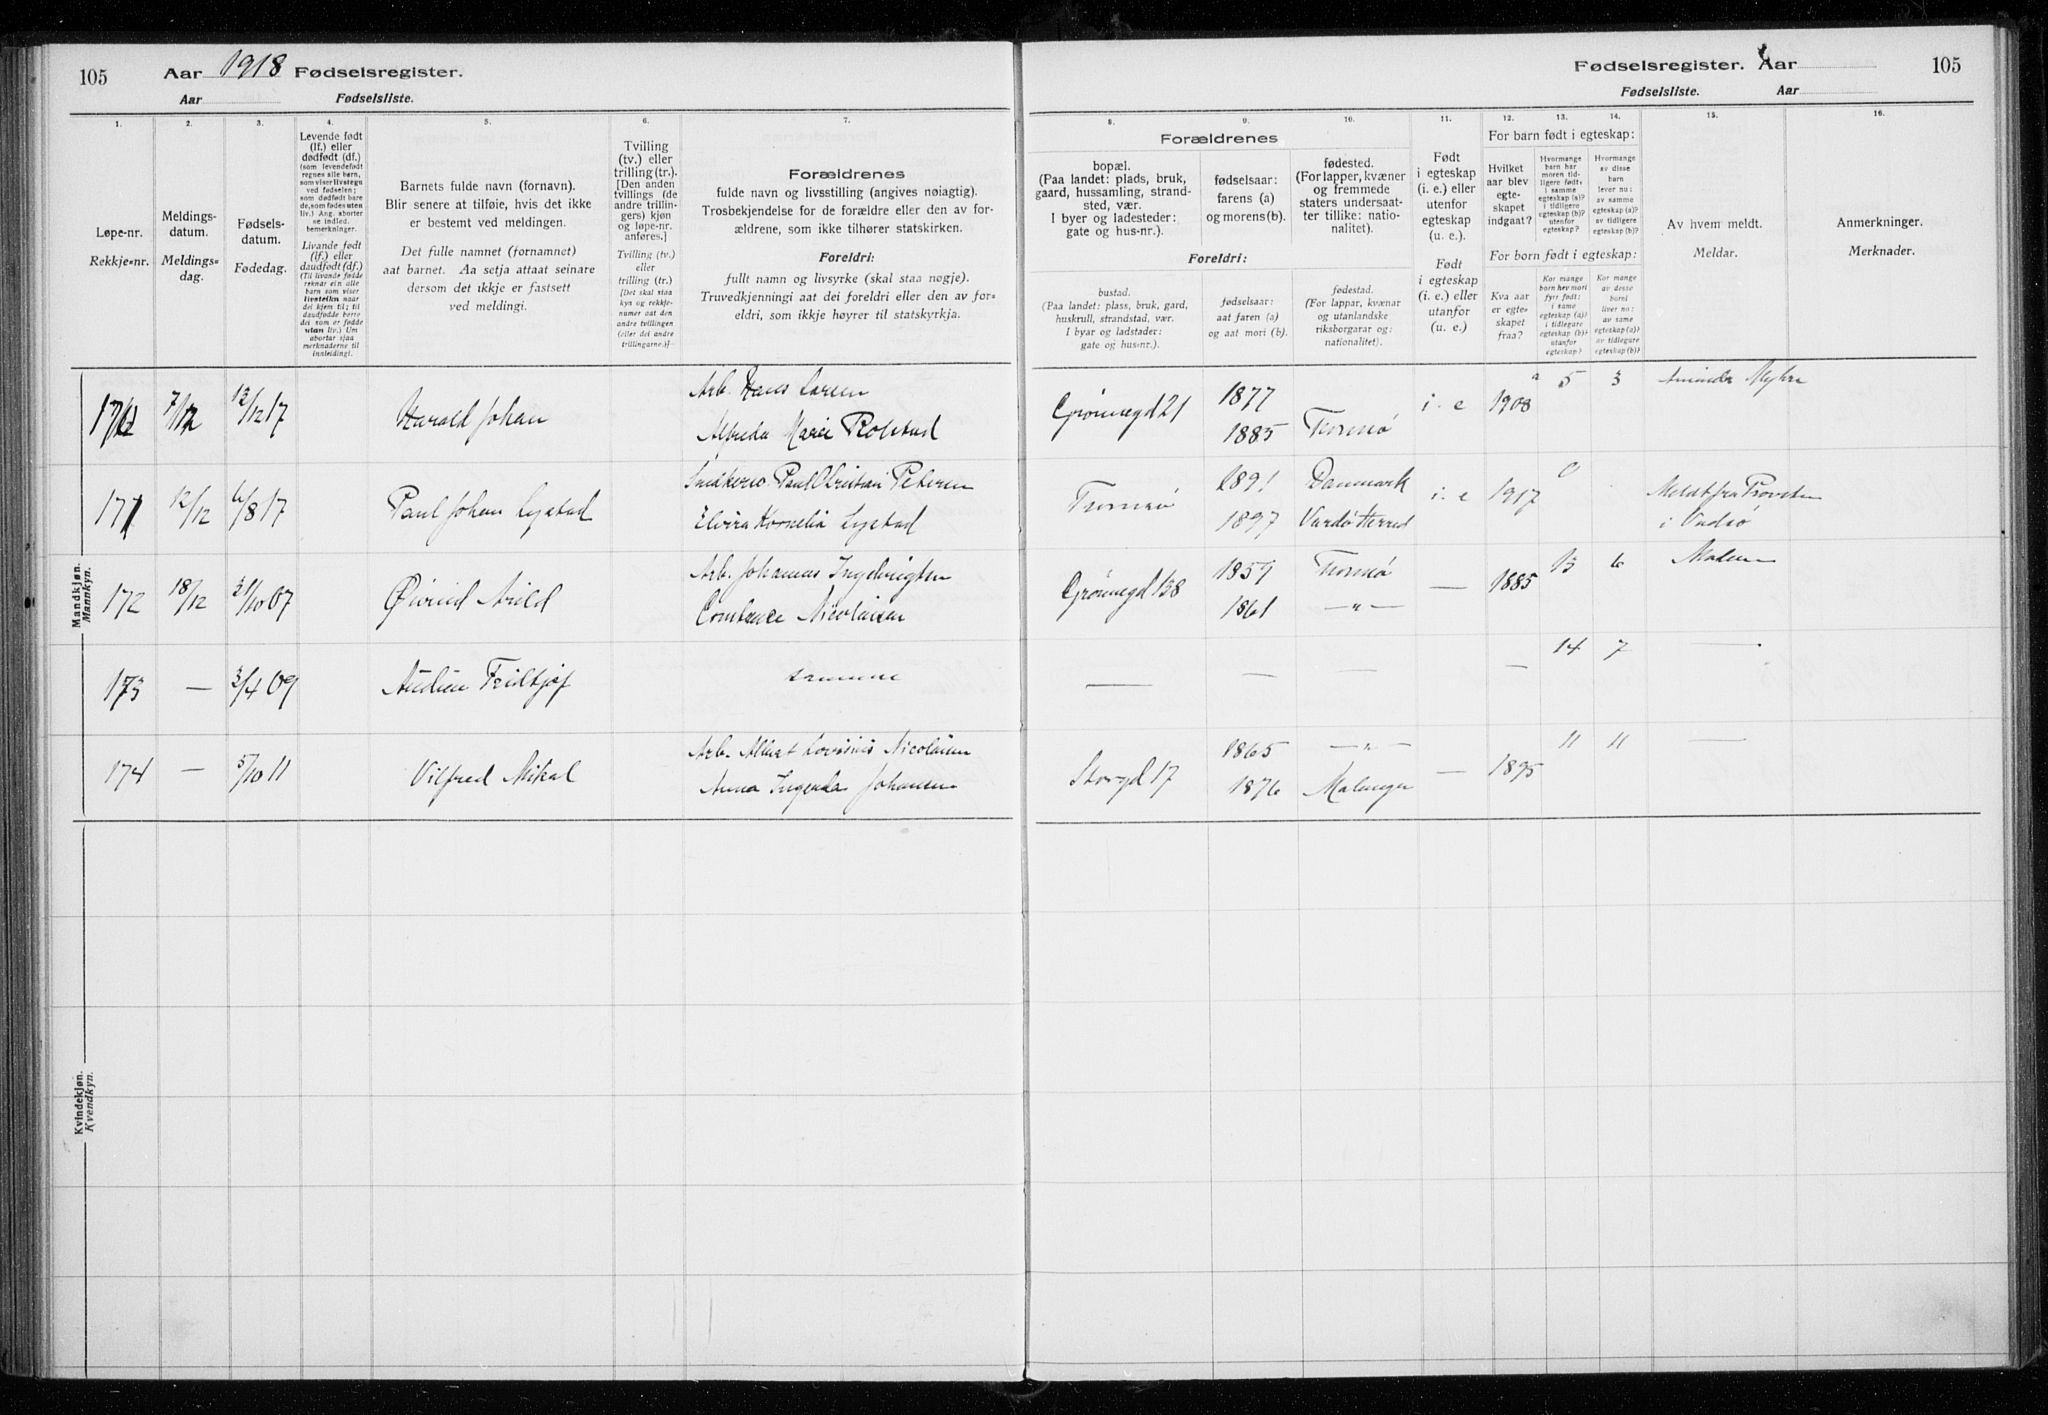 105 Aar 1918 Fødselsregister.
Aar Fødselsliste.
Fødselsregister. Aar 105
Fødselsliste. Aar
1.
Løpe-nr.
Rekkje-nr.
2.
Meldings-
datum.
Meldings-
dag.
3.
Fødsels-
datum.
Fødedag.
4.
Levende født
(lf.) eller
dødfødt (df.)
(som levendefødt
regnes alle barn,
som viser livstegn
ved fødselen;
som dødfødt bare
de, som fødes uten
liv.) Ang. aborter
se indled.
bemerkninger.
Livande født
(lf.) eller
daudfødt (df.)
(Til livande fødde
reknar ein alle
barn som viser
livsteikn naar
dei kjem til; til
daudfødde berre
dei som er fødde
utan liv.) Um
abortar sjaa
merknaderne til
innleidingi.
5.
Barnets fulde navn (fornavn).
Blir senere at tilføie, hvis det ikke
er bestemt ved meldingen.
Det fulle namnet (fornamnet)
aat barnet. Aa setja attaat seinare
dersom det ikkje er fastsett
ved meldingi.
6.
Tvilling
(tv.) eller
trilling (tr.).
[Den anden
tvillings (de
andre trillin-
gers) kjøn
og løpe-nr.
anføres.]
Tvilling (tv.)
eller
trilling (tr.)
[Det skal staa
kyn og rekkje-
numer aat den
andre tvillingen
(eller dei andre
trillingarne.)]
7.
Forældrenes
fulde navn og livsstilling (angives nøiagtig).
Trosbekjendelse for de forældre eller den av for-
ældrene, som ikke tilhører statskirken.
Foreldri:
fullt namn og livsyrke (skal staa nøgje).
Truvedkjenningi aat dei foreldri eller den av for-
eldri, som ikkje høyrer til statskyrkja.
8.
Forældrenes
bopæl.
(Paa landet: plads, bruk,
gaard, hussamling, strand-
sted, vær.
I byer og ladesteder:
gate og hus-nr.).
Foreldri:
bustad.
(Paa landet: plass, bruk, gard,
huskrull, strandstad, vær.
I byar og ladstader:
gate og hus-nr.).
9.
fødselsaar:
farens (a)
og morens (b).
fødselsaar:
aat faren (a)
og aat mori (b).
10.
fødested.
(For lapper, kvæner
og fremmede
staters undersaat-
ter tillike: natio-
nalitet).
fødestad.
(For lappar, kvænar
og utanlandske
riksborgarar og:
nationalitet).
11.
Født
i egteskap
(i. e.) eller
utenfor
egteskap
(u. e.).
Født
i egteskap
(i. e.) eller
utanfor
(u. e.).
12. 13. 14.
For barn født i egteskap:
Hvilket
aar blev
egte-
skapet
indgaat?
Hvormange
barn har
moren tid-
ligere født:
i samme
egteskap (a)?
i tidligere
egteskap (b)?
utenfor
egteskap?
Hvormange
av disse
barn
lever nu:
av samme
egteskap (a)?
av tidligere
egteskap (b)?
For born født i egteskap:
Kva aar
er egte-
skapet
fraa?
Kor mange
born hev mori
fyrr født:
i same
egteskap (a)?
i tidlegare
egteskap (b)?
utanfor
egteskap?
Kor mange
av desse
borni
liver nu:
av same
egteskap (a)?
av tidlegare
egteskap (b)?
15.
Av hvem meldt.
Meldar.
16.
Anmerkninger.
Merknader.
Mandkjøn.
Mannkyn.
7/12 12/12 17 Harald Johan
Arb. Hans Larsen
Alfreda Marie Rolstad
Grønnegd 21 1877
1885 Tromsø i. e 1908 5 3
171 12/12 6/8 17 Paul Johan Lystad
Paul Christian Petersen
Elvira Kornelia Lystad
Tromsø 1891 Danmark
1897 Vardø Herred i. e 1917 0 Meldt fra Provsten
i Vadsø
172 18/12 31/10 07 Øivind Arild
Arb. Johannes Ingebrigtsen
Constance Nicolaisen
Grønnegd 138 1859 Tromsø
1861 — „ — — 1885 13 6 Moderen
173 — 3/4 09 Fridtjof
samme
— — — — 14 7 —
174 — 5/10 11 Vilfred Mikal
Arb. Nicolaisen
Anna Johansen
Storgd 17 1865 — „ —
1876 Malangen — 1895 11 11 —
Kvindekjøn.
Kvendkyn.